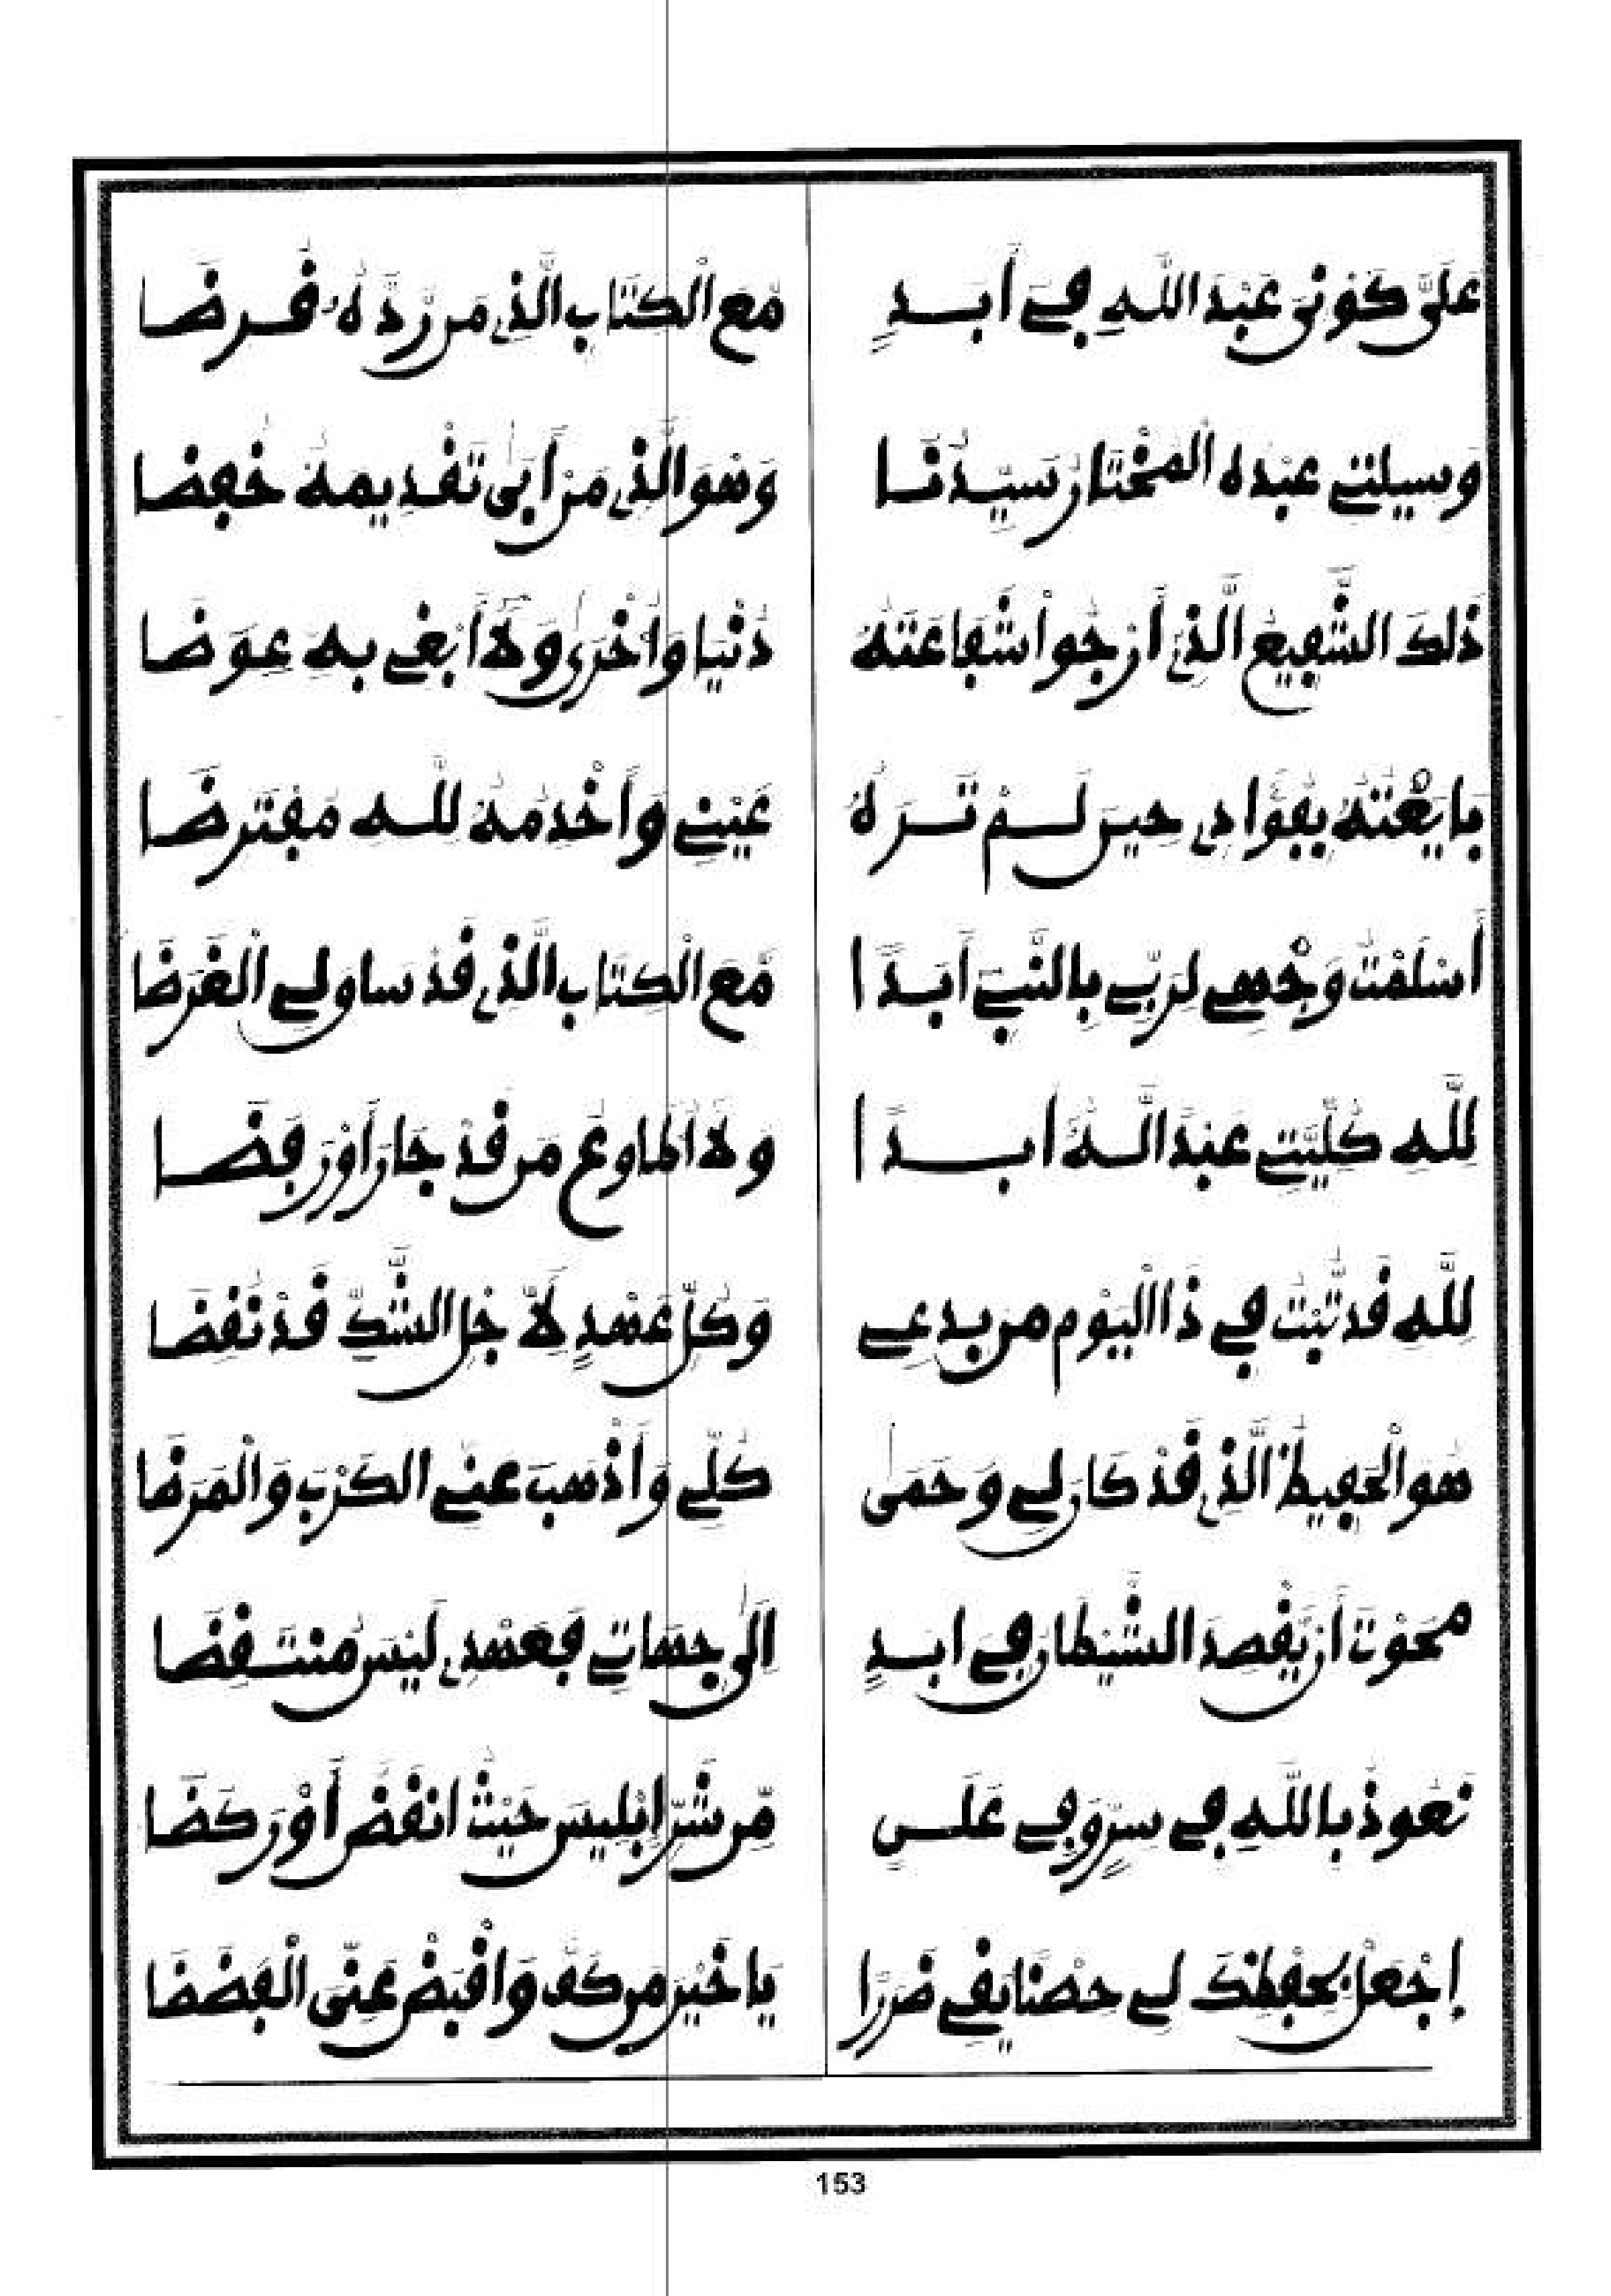 عَلَىَّ كَوْنِىَ عَبْدَ اللَّهِ فِى أَبَدٍ مَّعَ الْكِتَابِ الَّذِى مَن رَّدَّهُ قُرِضَا
وَسِيلَتِى عَبْدُهُ الْمُخْتَارُ سَيِّدُنَا وَهُوَ الَّذِى مَنْ أَبَى تَقْدِيمَهُ خُفِضَا
ذَلِكَ الشَّفِيعُ الَّذِى أَرْجُواْ شَفَاعَتَهُ دُنْيَا وَأُخْرَى وَلَا أَبْغِى بِهِ عِوَضَا
بَايَعْتُهُ بِفُؤَادِى حِينَ لَمْ تَرَهُ عَيْنِى وَأَخْدُمُهُ لِلَّهِ مُفْتَرِضَا
أَسْلَمْتُ وَجْهِى لِرَبِّى بِالنَّبِىِّ أَبَدًا مَّعَ الْكِتَابِ الَّذِى قَدْ سَاقَ لِى الْغَرَضَا
لِلَّهِ كُلِّيَّتِى عَبْدًا لَّهُ أَبَدًا وَلَا أُطَاوِعُ مَن قَدْ جَارَ أَوْ رَفَضَا
لِلَّهِ قَدْ تُّبْتُ فِى ذَا الْيَوْمِ مِن بِدَعِى وَكُلُّ عَهْدٍ لِأَجْلِ الشَّكِّ قَدْ نُقِضَا
هُوَ الْحَفِيظُ الَّذِى قَدْ كَانَ لِى وَحَمَى كُلِّى وَأَذْهَبَ عَنِّى الْكَرْبَ وَالْمَرَضَا
مَحَوْتَ أَن يَّقْصِدَ الشَّيْطَانُ فِى أَبَدٍ إِلَى جِهَاتِى فَعَهْدِى لَيْسَ مُنْتَقِضَا
نَعُوذُ بِاللَّهِ فِى سِرٍّ وَفِى عَلَنٍ مِّن شَرِّ إِبْلِيسَ حَيْثُ انْقَضَّ أَوْ رَكَضَا
إِجْعَلْ بِحِفْظِكَ لِى حِصْنًا يَقِى ضَرَرًا يَا خَيْرَ مَن كَفَّ وَاقْبِضْ عَنِّىَ الْفَضَضَا
153